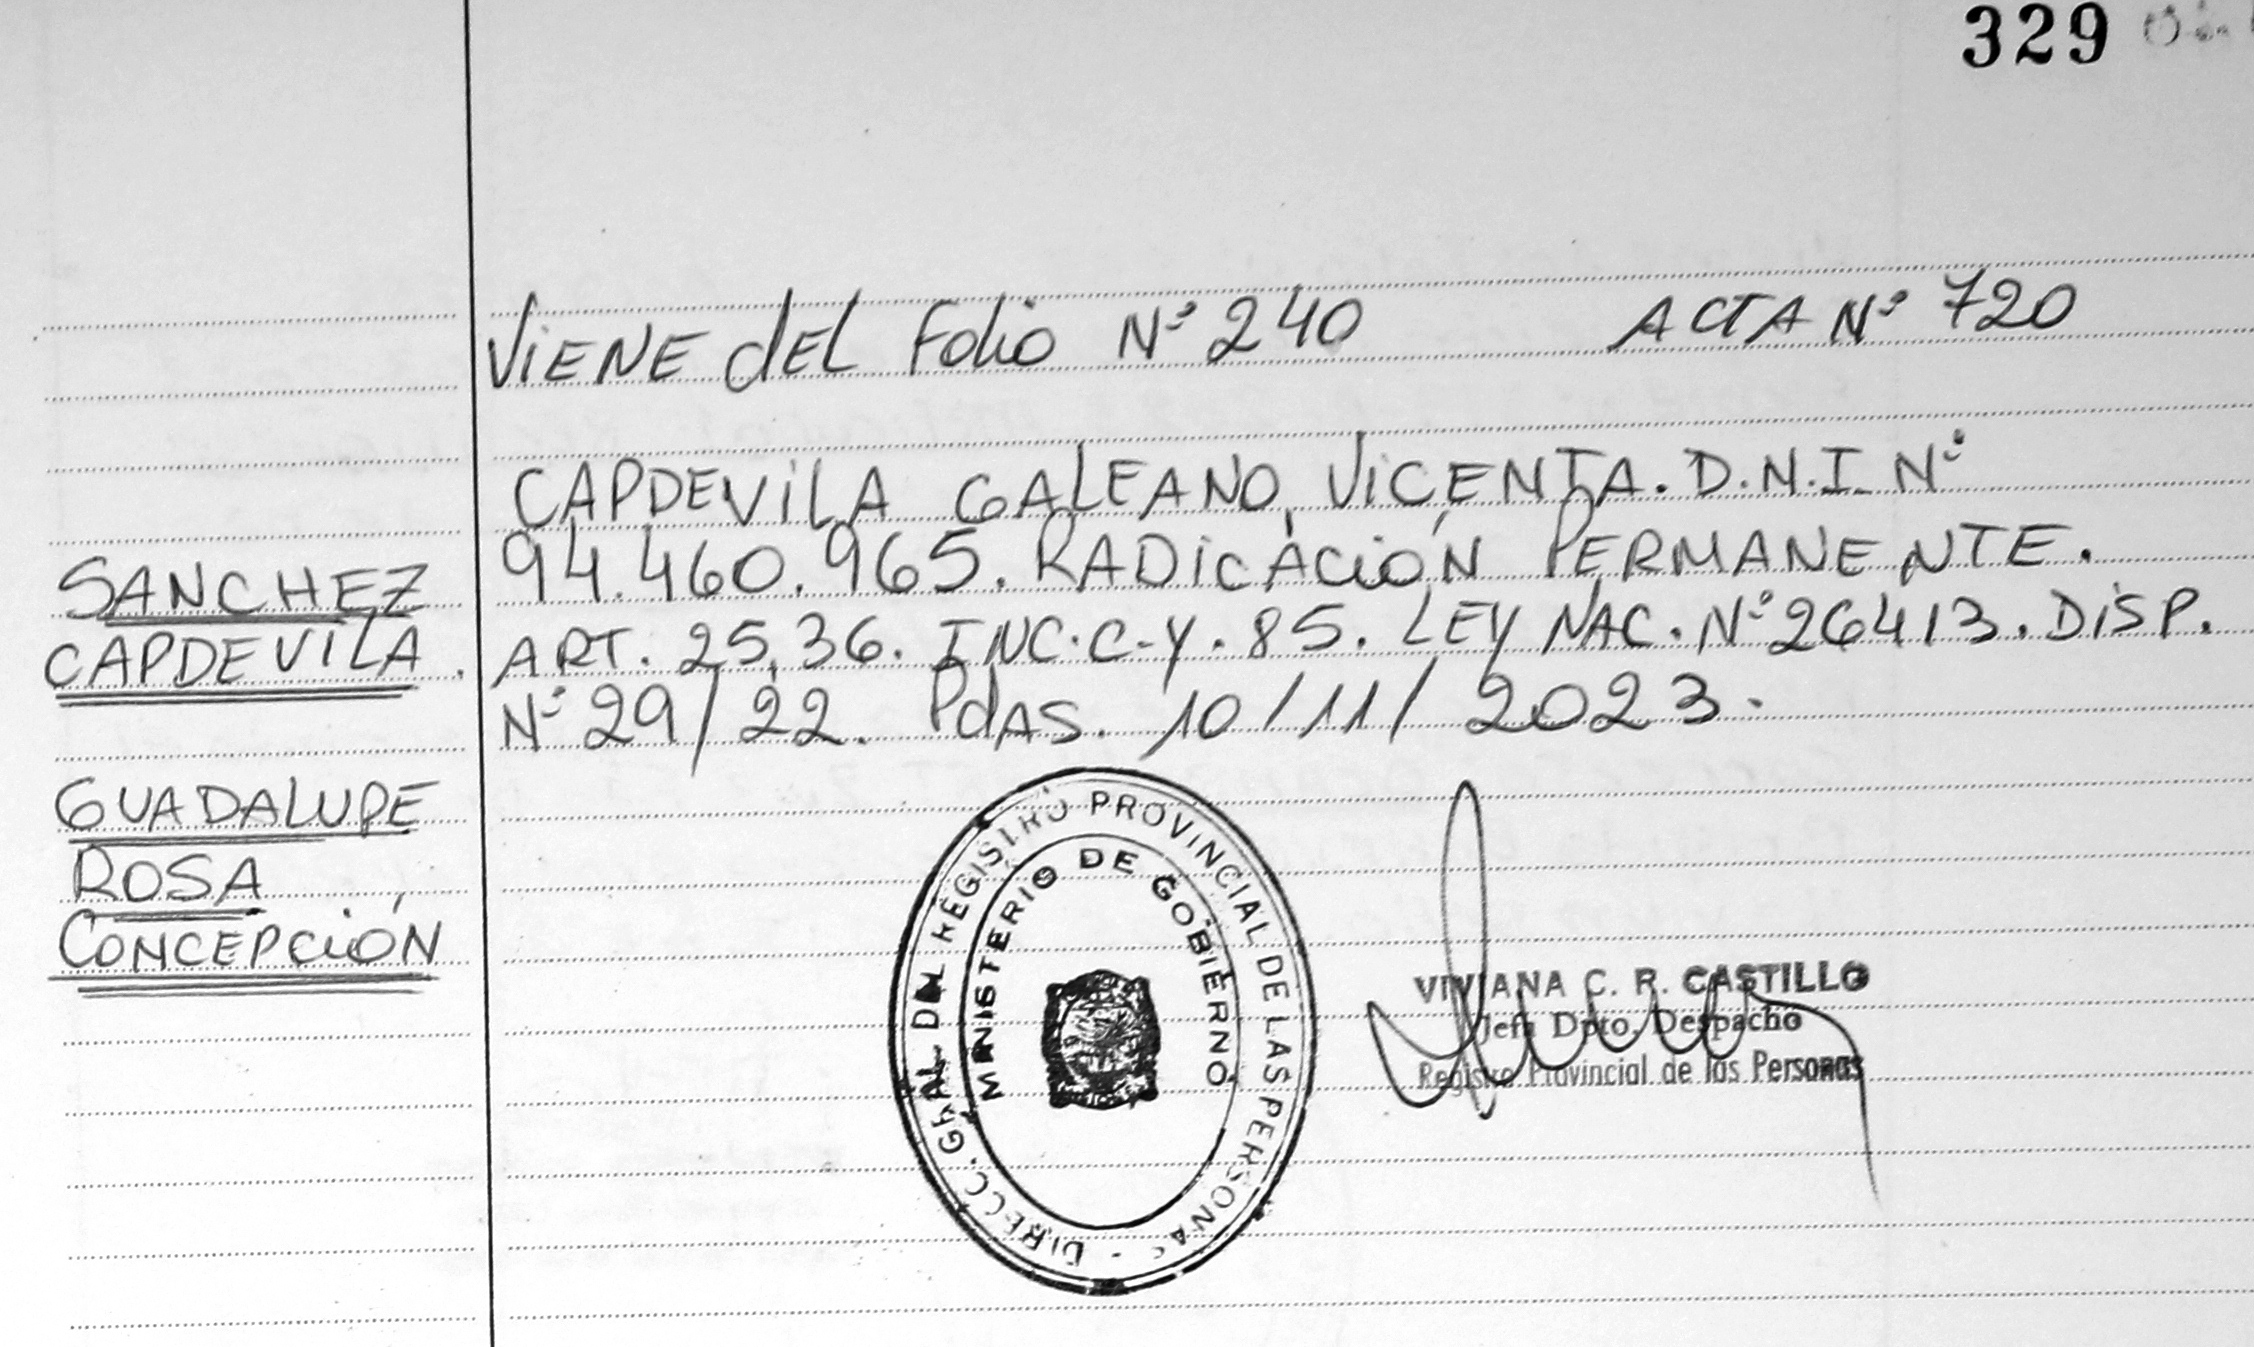 329
VIENE dEL Folio Nº 240 ACTA Nº 720
CAPDEVILA GALEANO, VICENTA. D.N.I. Nº
94.460.965. RADICACIÓN PERMANENTE.
SANCHEZ
CAPDEVILA.
ART. 25, 36. INC. C-Y. 85. LEY NAC. Nº 26413. DISP.
Nº 29/22. PdAS. 10/11/2023.
GUADALUPE
ROSA
CONCEPCIÓN
DIRECC. GRAL DEL REGISTRO PROVINCIAL DE LAS PERSONAS -
MINISTERIO DE GOBIERNO
VIVIANA C. R. CASTILLO
Jefa Dpto. Despacho
Registro Provincial de las Personas